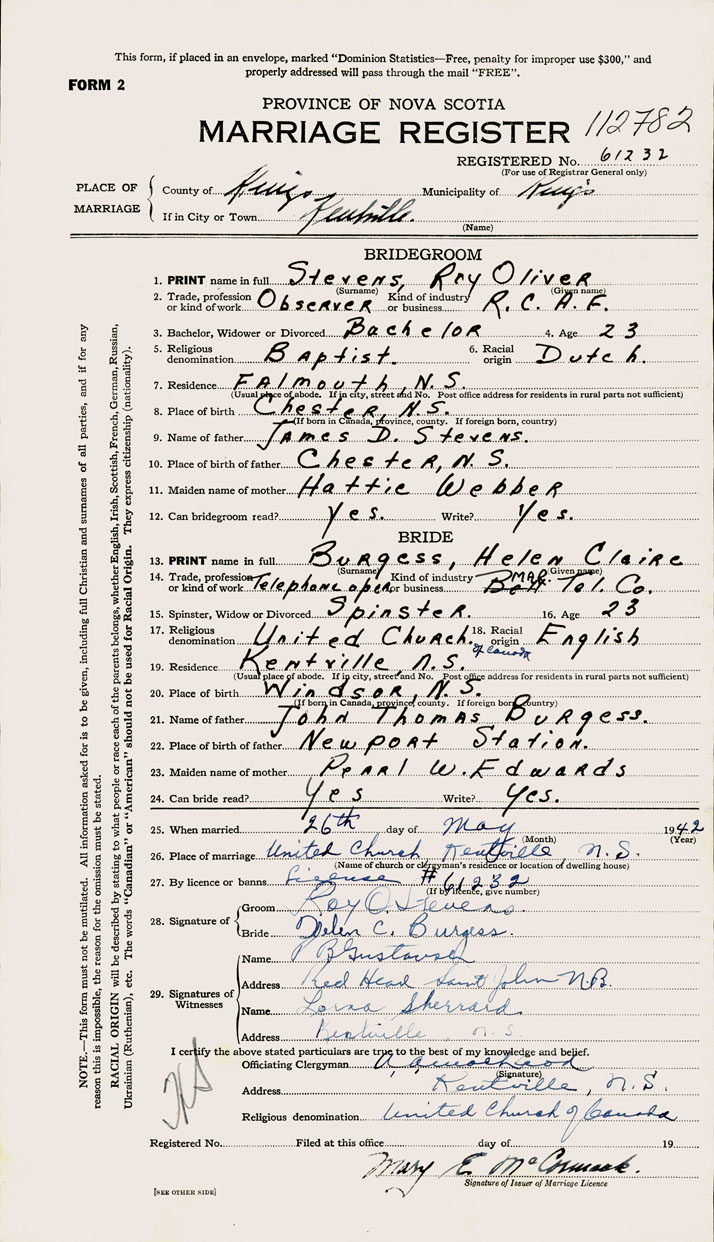 This form, if placed in an envelope, marked "Dominion Statistics—Free, penalty for improper use $300," and
properly addressed will pass through the mail "FREE".
FORM 2
PROVINCE OF NOVA SCOTIA
MARRIAGE REGISTER 112782
REGISTERED No. 61232
(For use of Registrar General only)
PLACE OF MARRIAGE
County of Kings Municipality of King's
If in City or Town Kentville.
(Name)
BRIDEGROOM
1. PRINT name in full Stevens, Roy Oliver
(Surname) (Given name)
2. Trade, profession or kind of work Observer Kind of industry or business R.C.A.F.
3. Bachelor, Widower or Divorced Bachelor 4. Age 23
5. Religious denomination Baptist. 6. Racial origin Dutch.
7. Residence Falmouth, N.S.
(Usual place of abode. If in city, street and No. Post office address for residents in rural parts not sufficient)
8. Place of birth Chester, N.S.
(If born in Canada, province, county. If foreign born, country)
9. Name of father James D. Stevens.
10. Place of birth of father Chester, N.S.
11. Maiden name of mother Hattie Webber
12. Can bridegroom read? Yes. Write? Yes.
BRIDE
13. PRINT name in full Burgess, Helen Claire
(Surname) (Given name)
14. Trade, profession or kind of work Telephone oper Kind of industry or business Mar. Tel. Co.
15. Spinster, Widow or Divorced Spinster. 16. Age 23
17. Religious denomination United Church of Canada 18. Racial origin English
19. Residence Kentville, N.S.
(Usual place of abode. If in city, street and No. Post office address for residents in rural parts not sufficient)
20. Place of birth Windsor, N.S.
(If born in Canada, province, county. If foreign born, country)
21. Name of father John Thomas Burgess.
22. Place of birth of father Newport Station.
23. Maiden name of mother Pearl W. Edwards
24. Can bride read? Yes Write? Yes.
25. When married 26th day of May 1942
(Month) (Year)
26. Place of marriage United Church Kentville, N.S.
(Name of church or clergyman's residence or location of dwelling house)
27. By licence or banns License #61232
(If by licence, give number)
28. Signature of
Groom Roy O. Stevens
Bride Helen C. Burgess.
29. Signatures of Witnesses
Name
Address Red Head Saint John N.B.
Name Lorna Sherrard
Address Kentville, N.S.
I certify the above stated particulars are true to the best of my knowledge and belief.
Officiating Clergyman
(Signature)
Address Kentville, N.S.
Religious denomination United Church of Canada
Registered No. Filed at this office day of 19
Mary E. McCormack.
Signature of Issuer of Marriage Licence
[SEE OTHER SIDE]
NOTE.—This form must not be mutilated. All information asked for is to be given, including full Christian and surnames of all parties, and if for any
reason this is impossible, the reason for the omission must be stated.
RACIAL ORIGIN will be described by stating to what people or race each of the parents belongs, whether English, Irish, Scottish, French, German, Russian,
Ukrainian (Ruthenian), etc. The words "Canadian" or "American" should not be used for Racial Origin. They express citizenship (nationality).